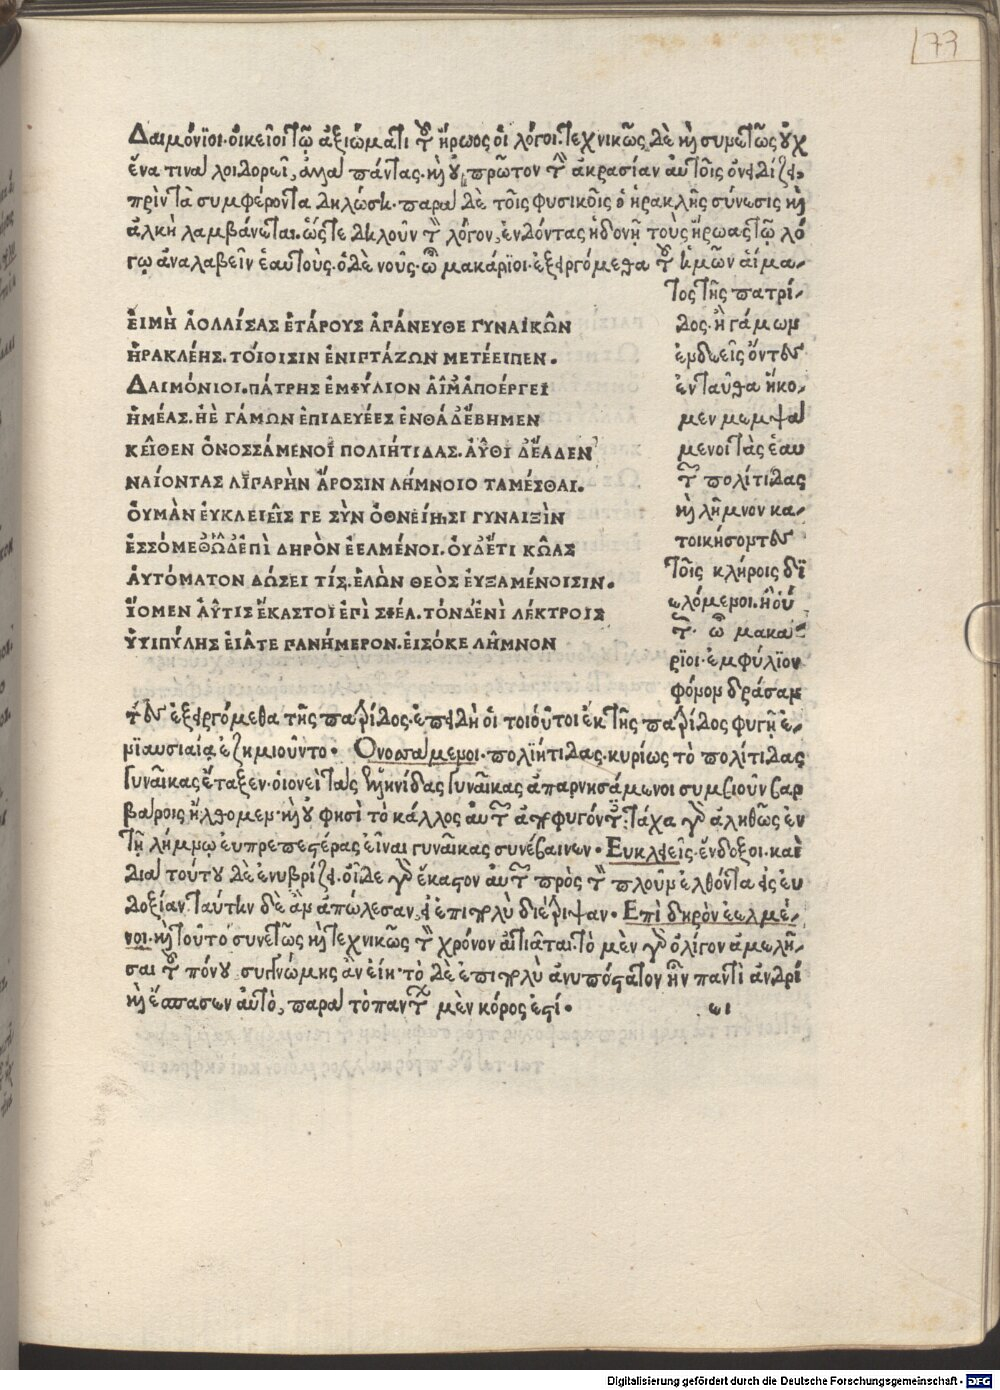 173
Δαιμόνϊοι. ὀικεῖοι τῷ ἀξιώματι τοῦ ἥρωος ὁι λόγοι. τεχνικῶς δὲ καὶ συμετῶς οὐχ
ἕνα τινα λοιδορεῖ, ἀλλα πάντας. καὶ οὐ πρῶτον τὴν ἀκρασίαν ἀυτοῖς ὀνειδίζει,
πρὶν τὰ συμφέροντα δηλώσει. παρα δὲ τοῖς φυσικοῖς ὁ ἡρακλῆς σύνεσις καὶ
ἀλκὴ λαμβάνεται. ὥστε δηλοῦν τὸν λόγον, ἐνδόντας ἡδονῇ τοὺς ἥρωας τῷ λό
γῳ ἀναλαβεῖν ἑαυτοὺς. ὁ δὲ νοῦς. ὦ μακάρϊοι. ἐξειργόμεθα τοῦ ἡμῶν ἁίμα-
τος τῆς πατρί-
δος. ἢ γάμων
ἐνδεεῖς ὄντες
ἐνταῦθα ἥκο-
μεν μεμψα
μενοι τὰς ἑαυ
τῶν πολίτιδας
καὶ λῆμνον κα-
τοικήσοντες
τοῖς κλήροις δϊ
ελόμενοι. ἢ ὁύ
τως ὦ μακα
ρϊοι. ἐμφύλϊον
φόνον δράσαν
ἘΙΜῊ ἈΟΛΛΊΣΑΣ ἙΤΆΡΟΥΣ ἈΠΆΝΕΥΘΕ ΓΥΝΑΙΚΩ͂Ν
ἩΡΑΚΛΈΗΣ. ΤΟΊΟΙΣΙΝ ἘΝΙΠΤΆΖΩΝ ΜΕΤΈΕΙΠΕΝ.
ΔΑΙΜΌΝΙΟΙ. ΠΆΤΡΗΣ ἘΜΦΎΛΙΟΝ ἉΙ͂Μ᾽ ἈΠΟΈΡΓΕΙ
ἩΜΈΑΣ. ἨῈ ΓΆΜΩΝ ἘΠΙΔΕΥΈΕΣ ἘΝΘΆΔ᾽ ἜΒΗΜΕΝ
ΚΕΙ͂ΘΕΝ ὈΝΟΣΣΆΜΕΝΟΙ ΠΟΛΙΉΤΙΔΑΣ. ἈΥ͂ΘΙ Δ᾽ ἝΑΔΕΝ
ΝΑΊΟΝΤΑΣ ΛΙΠΑΡῊΝ ἌΡΟΣΙΝ ΛΉΜΝΟΙΟ ΤΑΜΈΣΘΑΙ.
ὈΥ ΜᾺΝ ἘΥΚΛΕΙΕΙ͂Σ ΓΕ ΣῪΝ ὈΘΝΕΊΗΙΣΙ ΓΥΝΑΙΞῚΝ
ἘΣΣΌΜΕΘ᾽ ὯΔ᾽ ἘΠῚ ΔΗΡῸΝ ἘΕΛΜΈΝΟΙ. ὈΥΔΈ ΤΙ ΚΩ͂ΑΣ
ἈΥΤΌΜΑΤΟΝ ΔΏΣΕΙ ΤΊΣ. ἙΛΩ͂Ν ΘΕῸΣ ἘΥΞΑΜΈΝΟΙΣΙΝ.
ἼΟΜΕΝ ἈΥ͂ΤΙΣ ἝΚΑΣΤΟΙ ἘΠῚ ΣΦΈΑ. ΤῸΝ Δ᾽ ἘΝῚ ΛΈΚΤΡΟΙΣ
ὙΨΙΠΎΛΗΣ ἘΙΑ͂ΤΕ ΠΑΝΉΜΕΡΟΝ. ἘΙΣΌΚΕ ΛΗ͂ΜΝΟΝ
τες ἐξειργόμεθα τῆς πατρίδος. ἐπειδὴ ὁι τοιοῦτοι ἐκ τῆς πατρίδος φυγῇ ἐ-
νϊαυσιαίᾳ ἐζημιοῦντο. Ὀνοσσαμενοι. πολϊήτιδας. κυρίως τὸ πολίτιδας
γυναῖκας ἔταξεν. ὁιονεὶ τὰς ἑλληνίδας γυναῖκας ἀπαρνησάμενοι συμβιοῦν βαρ
βάροις ἤλθομεν. καὶ οὔ φησὶ τὸ κάλλος ἀυτῶν ἀποφυγόντες. τάχα γὰρ ἀληθῶς ἐν
τῇ λήμνῳ ἐυπρεπεστέρας ἐῖναι γυναῖκας συνέβαινεν. Ἐυκλεεῖς. ἔνδοξοι. καὶ
δια τούτου δὲ ἐνυβρίζει. ὅιδε γὰρ ἕκαστον ἀυτῶν πρὸς τὸν πλοῦν ἐλθόντα εἰς ἐυ
δοξίαν. ταύτην δὲ ἂν ἀπώλεσαν, εἰ ἐπιπολὺ διέτριψαν. Ἐπὶ δηρὸν ἐελμέ-
νοι. καὶ τοῦτο συνετῶς καὶ τεχνικῶς τὸν χρόνον ἀιτιᾶται. τὸ μὲν γὰρ ὀλίγον ἀμελῆ-
σαι τοῦ πόνου συγνώμης ἂν ἐίη. τὸ δὲ ἐπιπολὺ ἀνυπόστατον ἦν παντὶ ἀνδρὶ
καὶ ἔσπασεν ἀυτὸ, παρα τὸ πάντων μὲν κόρος ἐστί. ωι
Digitalisierung gefördert durch die Deutsche Forschungsgemeinschaft - DFG